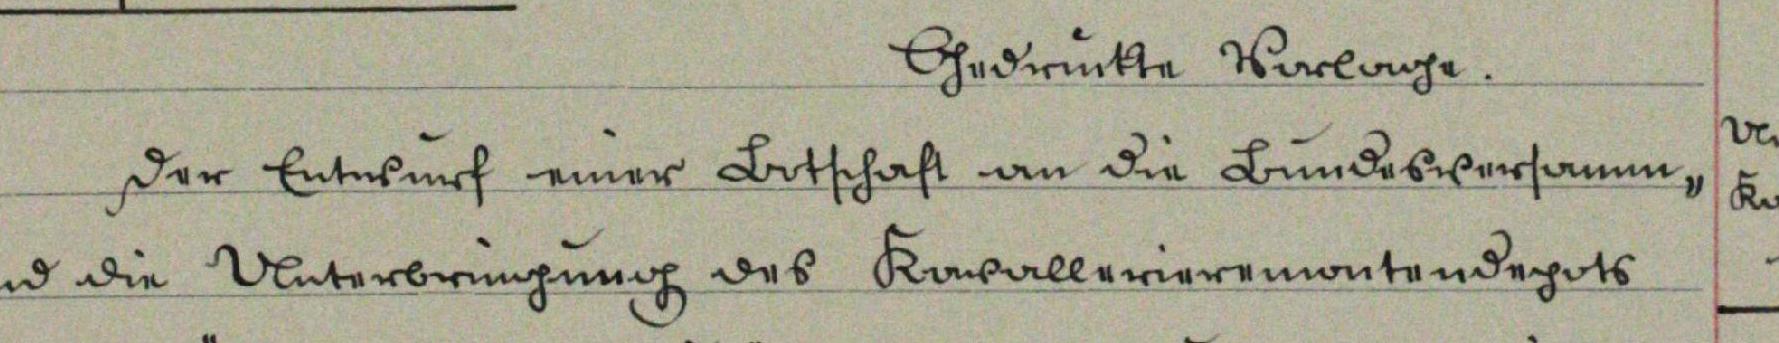 Gedruckte Vorlage.
Der Entwurf einer Botschaft an die Bundesversamm„
die Unterbringung des Kavallerieremontendepots